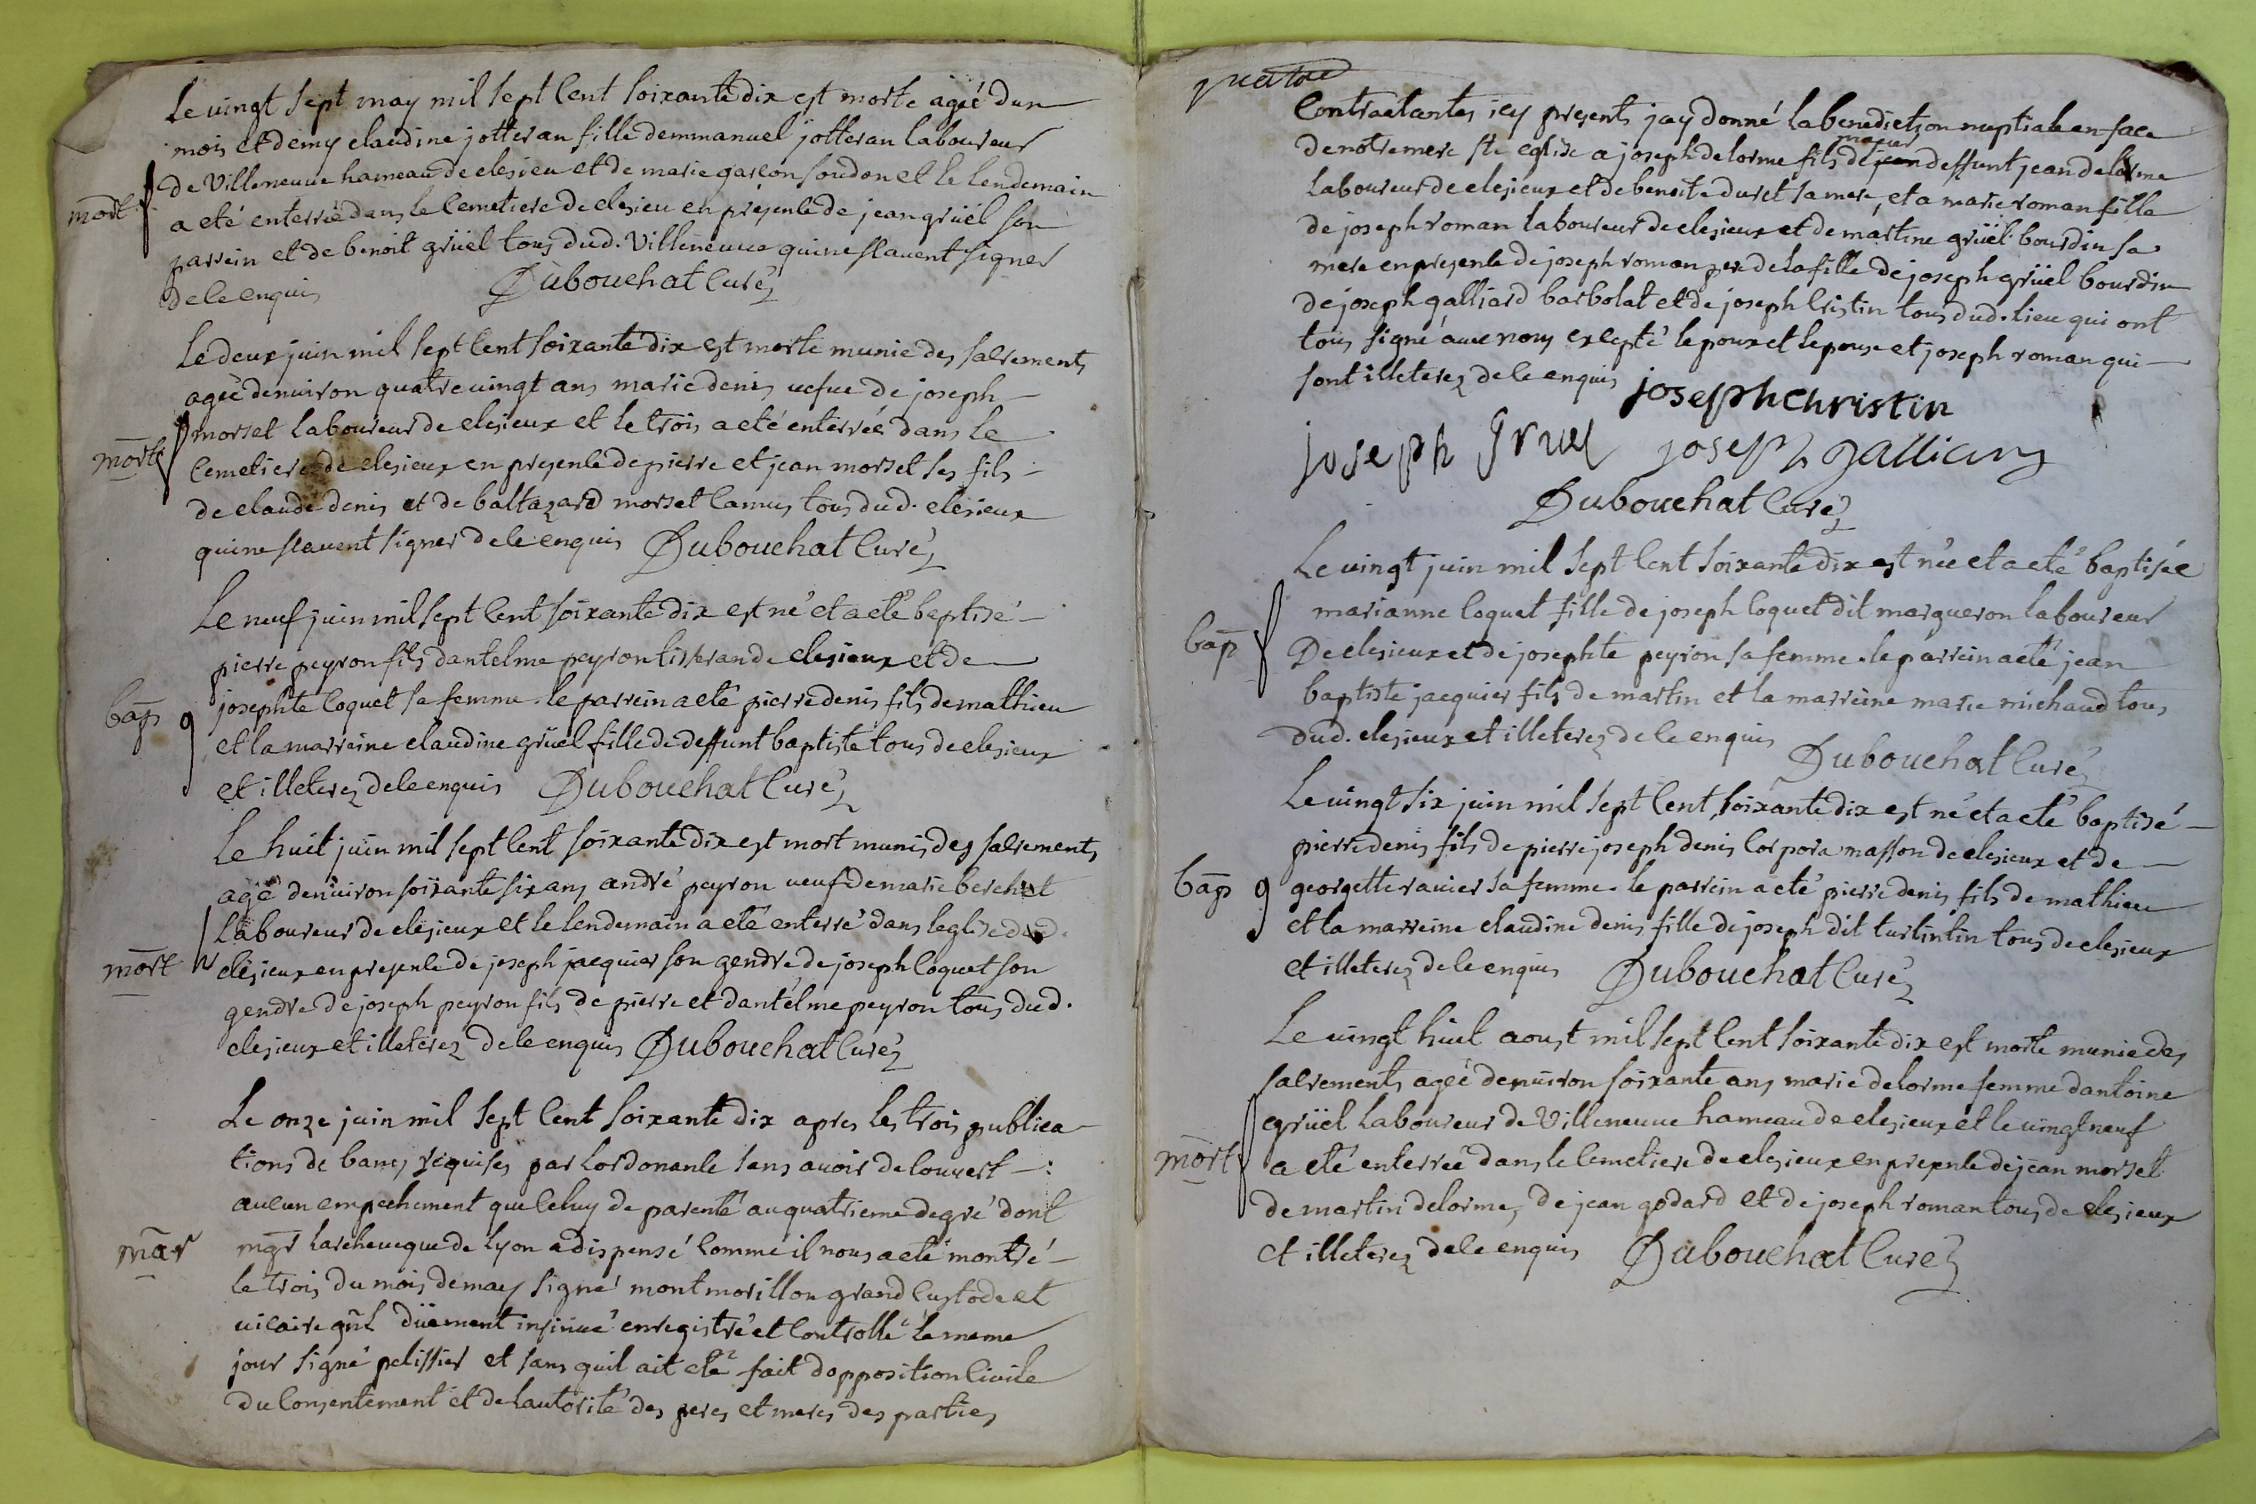 Le vingt sept may mil sept cent soixante dix est morte ageé dun
mois et demy claudine jotteran fille demmanuel jotteran laboureur
de villeneuve hameau de clesieu et de marie garçon soudon et le lendemain
mort
a eté enterreé dans le cemetiere de clesieu en presence de jean grüel son
parrein et de benoit grüel tous dud. villeneuve qui ne scavent signer
de ce enquis Dubouchat Curé
Le deux juin mil sept cent soixante dix est morte munie des sacrements
ageé denviron quatre vingt ans marie denis vefve de joseph
morsel laboureur de clesieux et le trois a eté enterreé dans le
morte
cemetiere de clesieux en presence de pierre et jean morsel ses fils
de claude denis et de baltazard morsel camus tous dud. clesieux
qui ne scavent signer de ce enquis Dubouchat Curé
Le neuf juin mil sept cent soixante dix est né et a eté baptisé
pierre peyron fils dantelme peyron tisseran de clesieux et de
josephte coquet sa femme. le parrein a eté pierre denis fils de mathieu
bap
et la marreine claudine grüel fille de deffunt baptiste tous de clesieux
et illeterez de ce enquis Dubouchat Curé
Le huit juin mil sept cent soixante dix est mort munis des sacrements
agé denviron soixante six ans andré peyron veuf de marie berchat
laboureur de clesieux et le lendemain a eté enterré dans leglise dud.
mort
clesieux en presence de joseph jacquier son gendre de joseph coquet son
gendre de joseph peyron fils de pierre et dantelme peyron tous dud.
clesieux et illeterez de ce enquis Dubouchat Curé
Le onze juin mil sept cent soixante dix apres les trois publica
tions de bancs requises par lordonance sans avoir decouvert
aucun empechement que celuy de parenté au quatrieme degré dont
mar
mgr larcheveque de lyon a dispensé comme il nous a eté montré
le trois du mois de may signé montmorillon grand custode et
vicaire gñl düement insinué enregistré et controllé le meme
jour signé pelissier et sans quil ait eté fait dopposition civile
du consentement et de lautorité des peres et meres des parties
contractantes icy presents jay donné la benediction nuptiale en face
de notre mere ste eglise a joseph delorme fils de jean deffunt jean delorme
laboureur de clesieux et de benoite duret sa mere, et a marie roman fille
de joseph roman laboureur de clesieux et de martine grüel bourdin sa
mere en presence de joseph roman pere de la fille de joseph grüel bourdin
de joseph galliard barbolat et de joseph cristin tous dud. lieu qui ont
tous signé avec nous excepté lepoux et lepouse et joseph roman qui
sont illeterez de ce enquis josephchristin
joseph gruel joseph galliard
Dubouchat Curé
Le vingt juin mil sept cent soixante dix est neé et a eté baptisée
marianne coquet fille de joseph coquet dit margueron laboureur
bap
De clesieux et de josephte peyron sa femme. le parrein a eté jean
baptiste jacquier fils de martin et la marreine marie michaud tous
dud. clesieux et illeterez de ce enquis Dubouchat Curé
Le vingt six juin mil sept cent soixante dix est né et a eté baptisé
pierre denis fils de pierre joseph denis corpora masson de clesieux et de
bap
georgette ravier sa femme. le parrein a eté pierre denis fils de mathieu
et la marreine claudine denis fille de joseph dit turlintin tous de clesieux
et illeterez de ce enquis Dubouchat Curé
Le vingt huit aoust mil sept cent soixante dix est morte munie des
sacrements ageé denviron soixante ans marie delorme femme dantoine
grüel laboureur de villeneuve hameau de clesieux et le vingt neuf
mort
a eté enterreé dans le cemetiere de clesieux en presence de jean morsel
de martin delorme, de jean godard et de joseph roman tous de clesieux
et illeterez de ce enquis Dubouchat Curé